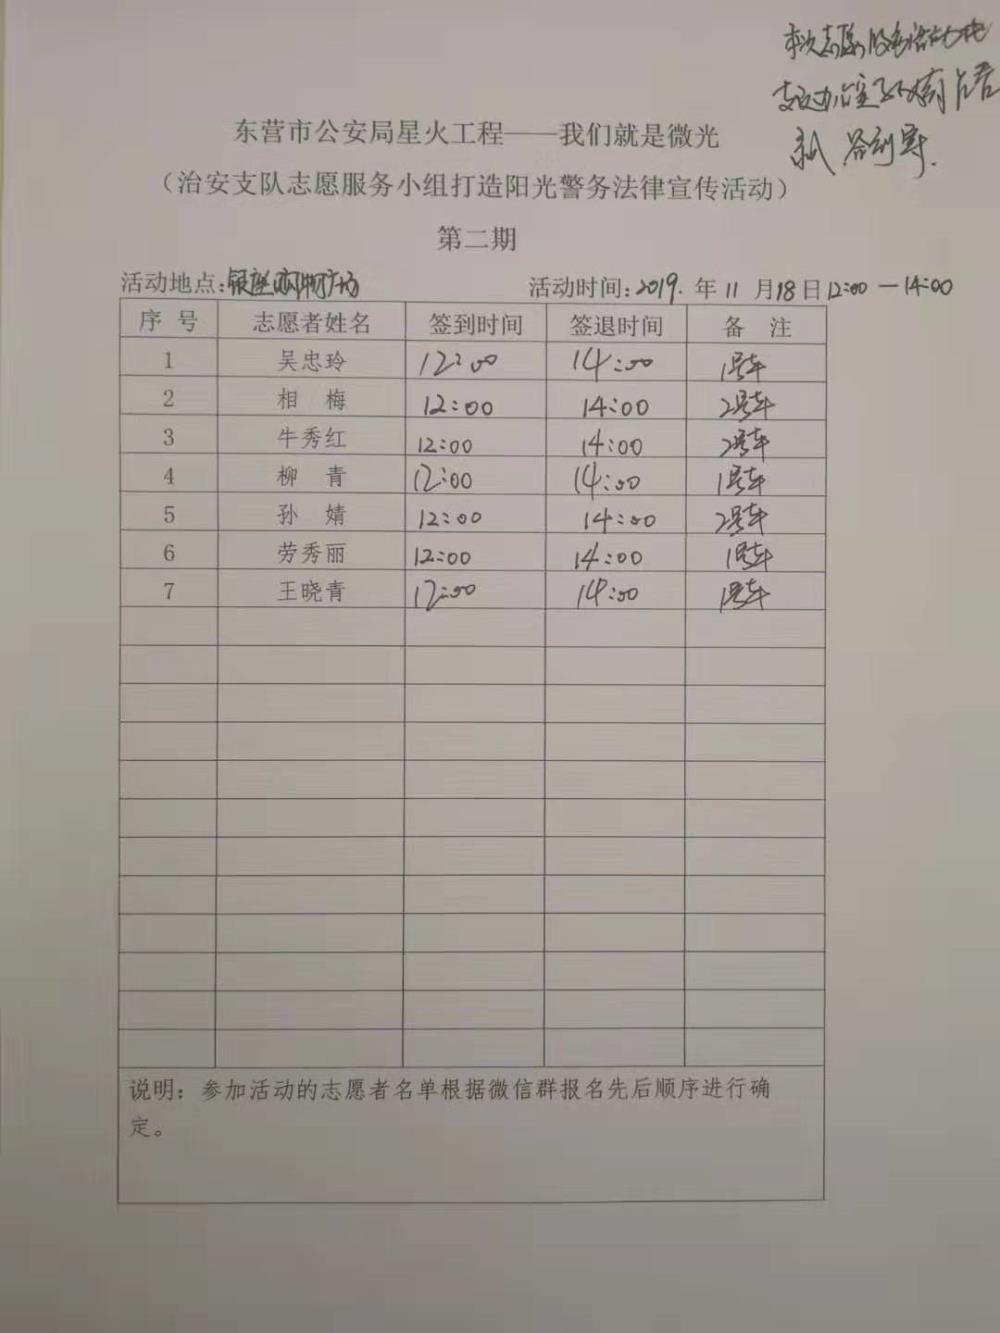 本次志愿服务活动由
支队办公室
东营市公安局星火工程——我们就是微光
（治安支队志愿服务小组打造阳光警务法律宣传活动）
第二期
活动地点:银座购物广场 活动时间:2019. 年 11 月18日12:00—14:00
序 号 志愿者姓名 签到时间 签退时间 备 注
1 吴忠玲 12:00 14:00 1号车
2 相 梅 12:00 14:00 2号车
3 牛秀红 12:00 14:00 2号车
4 柳 青 12:00 14:00 1号车
5 孙 婧 12:00 14:00 2号车
6 劳秀丽 12:00 14:00 1号车
7 王晓青 12:00 14:00 1号车
说明：参加活动的志愿者名单根据微信群报名先后顺序进行确
定。